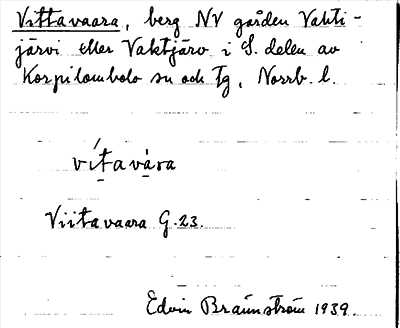 Vittavaara, berg NV gården Vahti-
järvi eller Vaktjärv i S. delen av
Korpilombolo sn och tg, Norrb. l.
vítavàra
Viitavaara G.23.
Edvin Brännström 1939.